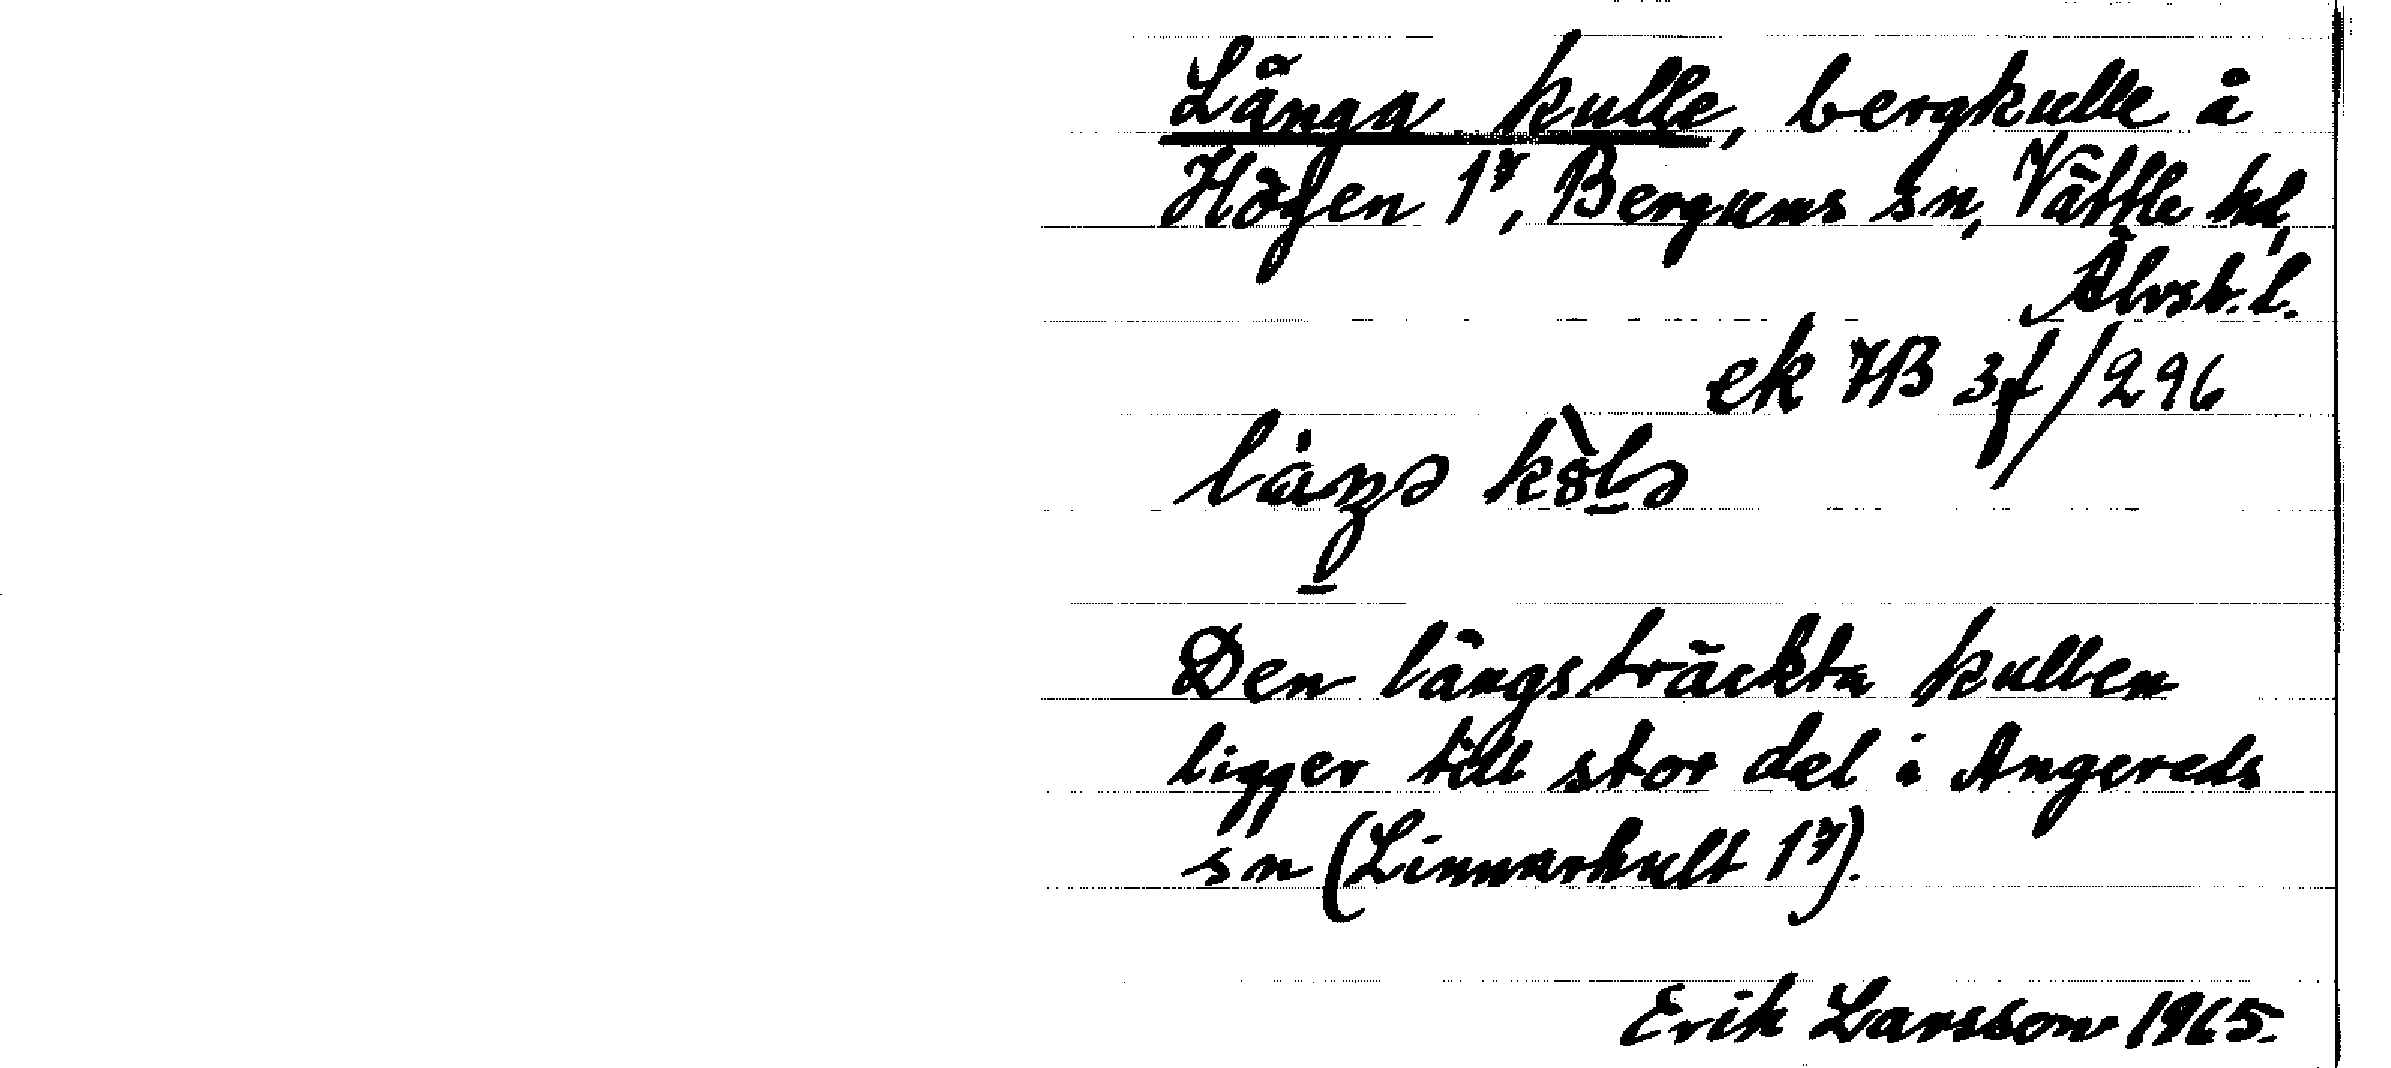 Långa kulle, bergkulle å
Högen 1⁷, Bergums sn, Vättle hd,
Älvsb. l.
ek 7B 3f/296
Den långsträckta kullen
ligger till stor del i Angereds
sn (Linnarhult 1⁷).
Erik Larsson 1965.